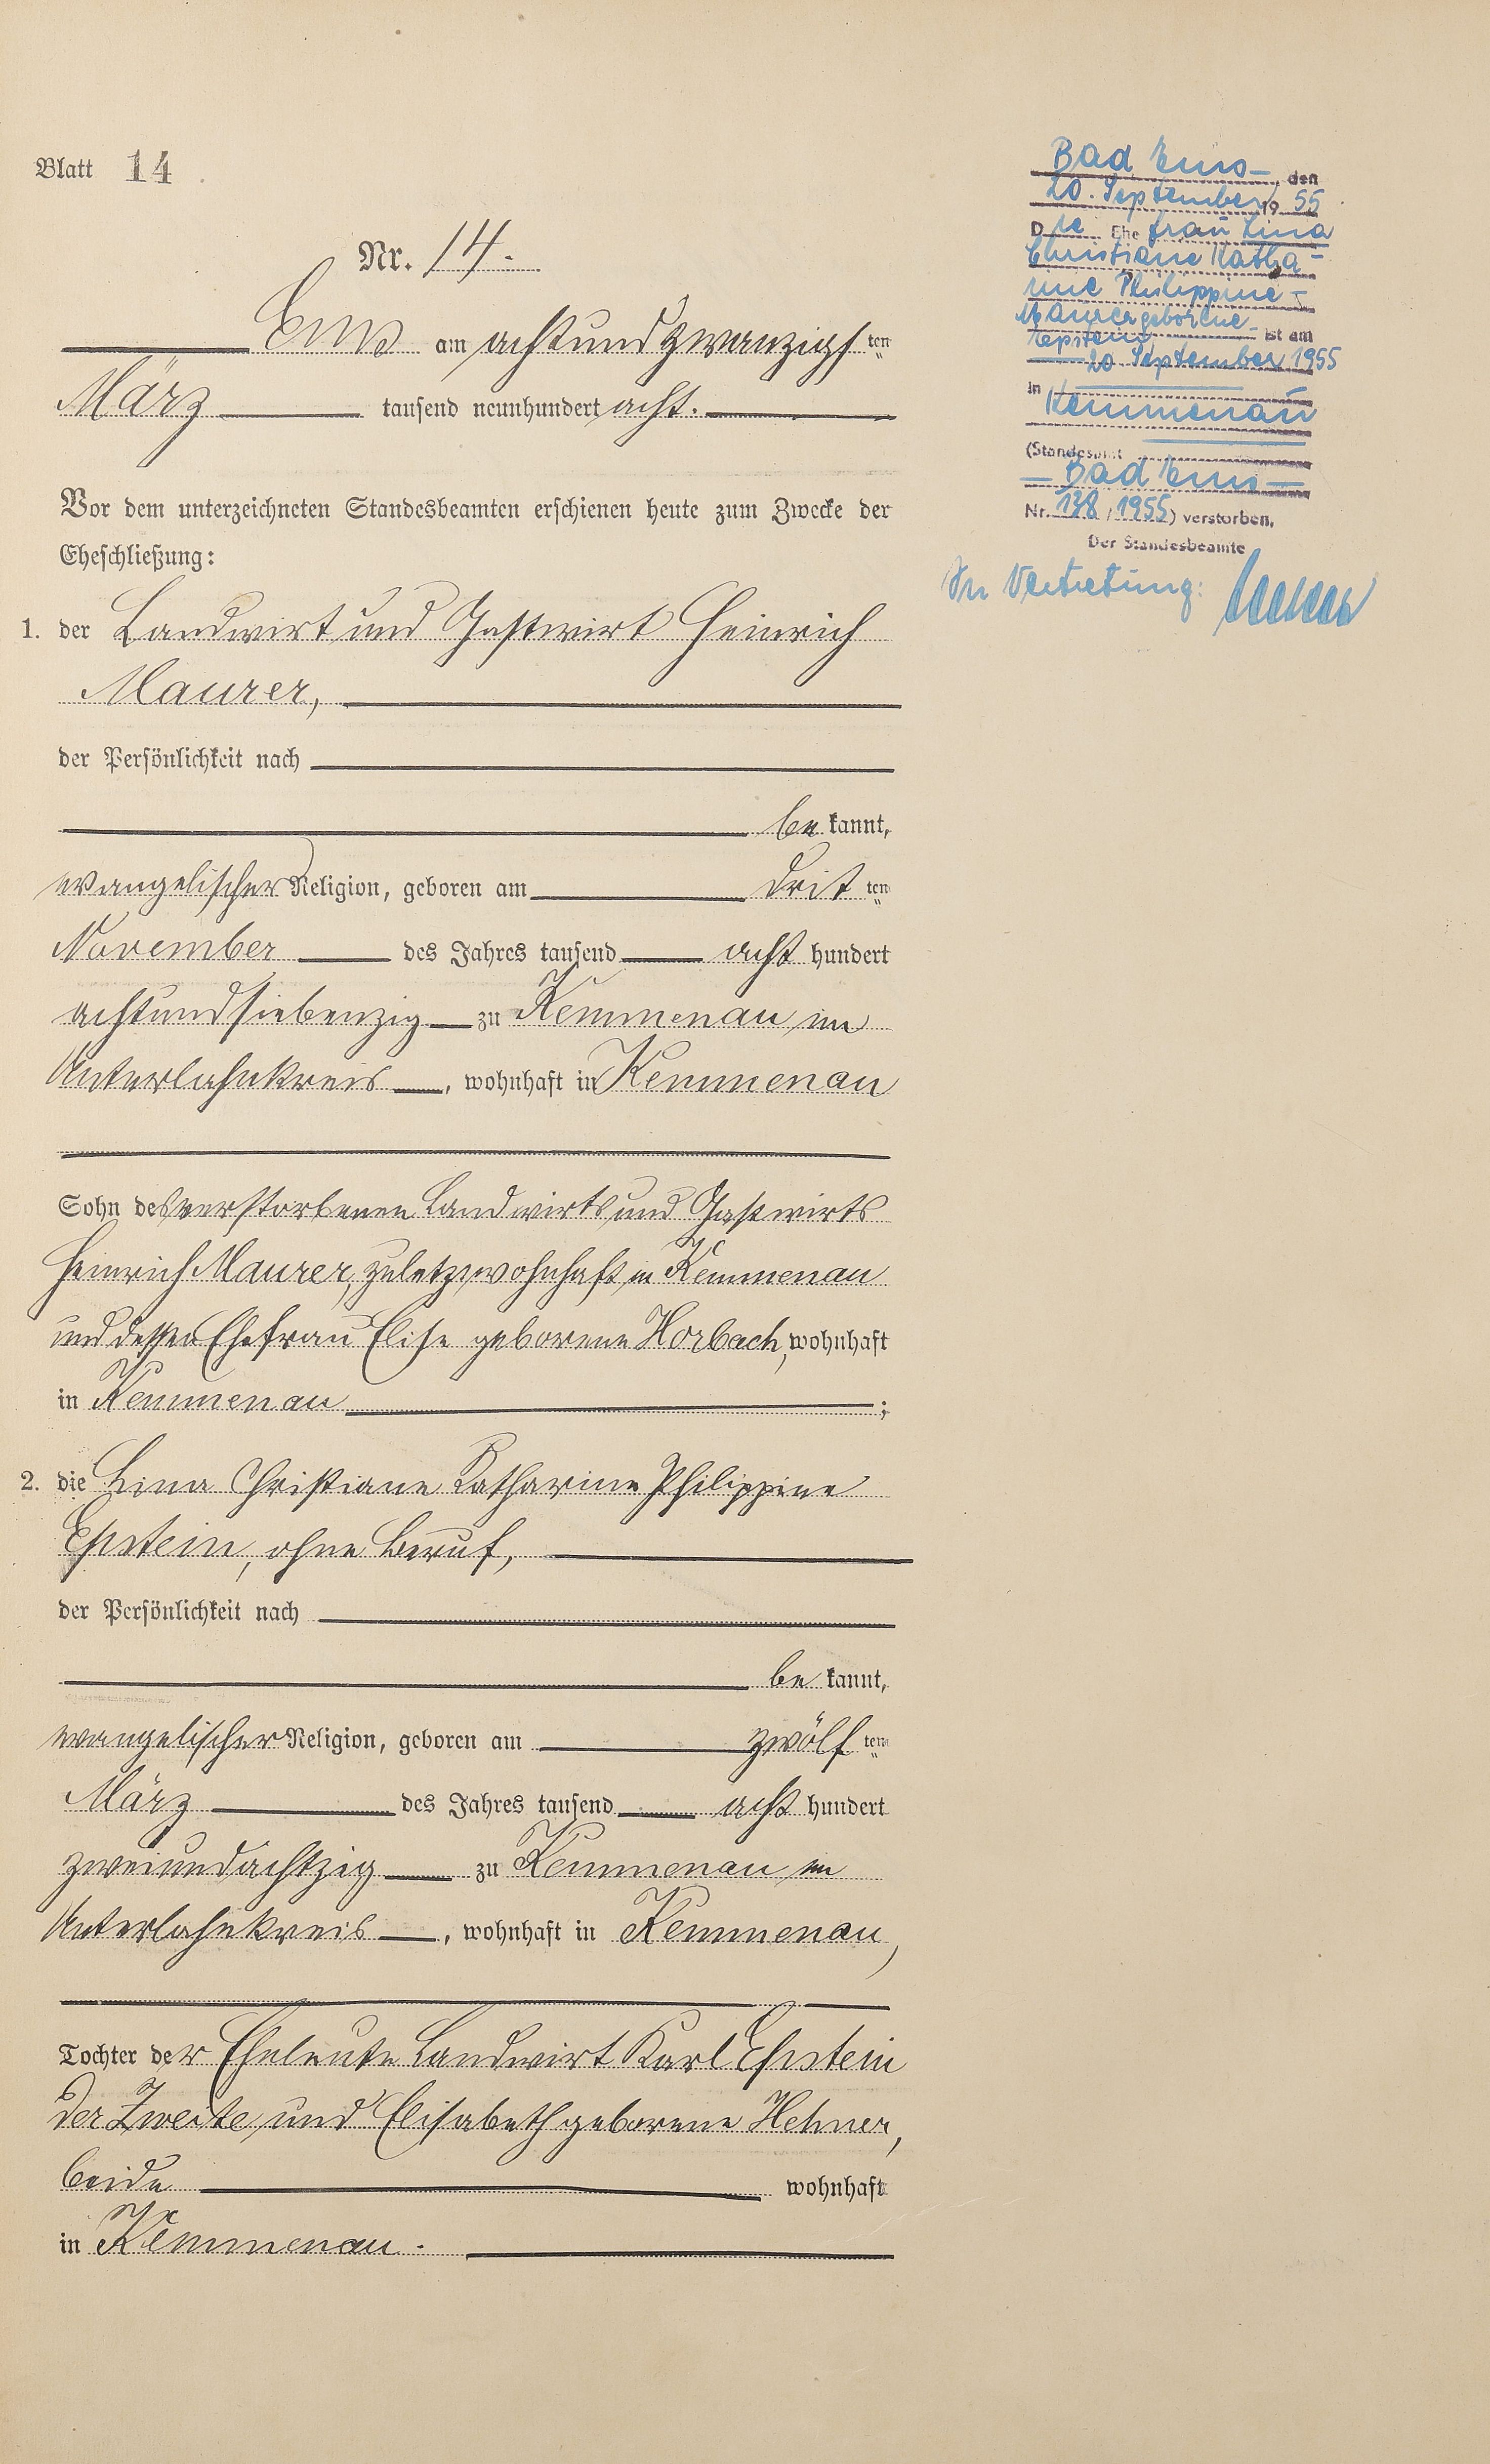 Blatt 14
Nr. 14.
Ems am achtundzwanzigsten
März tausend neunhundert acht.
Vor dem unterzeichneten Standesbeamten erschienen heute zum Zwecke der
Eheschließung:
1. der Landwirt und Gastwirt Heinrich
Maurer,
der Persönlichkeit nach
bekannt,
evangelischer Religion, geboren am dritten
November des Jahres tausend acht hundert
achtundsiebenzig zu Kemmenau im
Unterlahnkreis, wohnhaft in Kemmenau
Sohn des verstorbenen Landwirts und Gastwirts
Heinrich Maurer, zuletzt wohnhaft in Kemmenau
und dessen Ehefrau Elise geborene Horbach, wohnhaft
in Kemmenau;
2. die Lina Christiane Katharine Philippine
Epstein, ohne Beruf,
der Persönlichkeit nach
bekannt,
evangelischer Religion, geboren am zwölften
März des Jahres tausend acht hundert
zweiundachtzig zu Kemmenau im
Unterlahnkreis, wohnhaft in Kemmenau,
Tochter der Eheleute Landwirt Karl Epstein
der Zweite und Elisabeth geborene Hehner,
beide wohnhaft
in Kemmenau.
Bad Ems, den
20. September 1955
Die Ehefrau Lina
Christiane Katha-
rine Philippine
Maurer geborene
Epstein ist am
20. September 1955
in Kemmenau
(Standesamt
Bad Ems
Nr. 138/1955) verstorben,
Der Standesbeamte
In Vertretung: